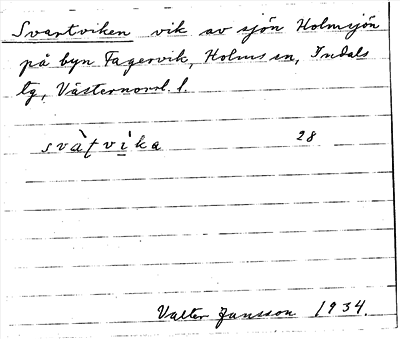 Svartviken vik av sjön Holmsjön
på byn Fagervik, Holms sn, Indals
tg, Västernorrl. l.
svàʈvìka 28
Valter Jansson 1934.